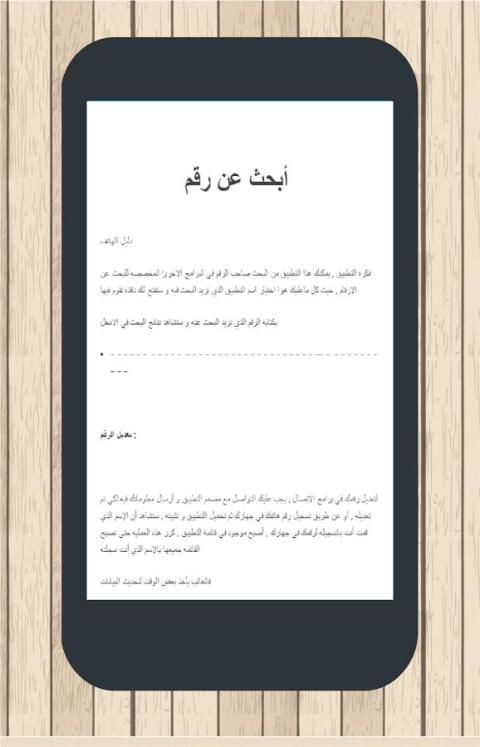 أبحث عن رقم
دليل الهاتف
فكره التطبيق , يمكنك هذا التطبيق من البحث صاحب الرقم في البرامج الاخرئ المخصصه للبحث عن
الارقام , حيث كل ماعليك هوا اختيار اسم التطبيق الذي تريد البحث فيه و ستفتح لك نافذه تقوم فيها
بكتابه الرقم الذي تريد البحث عنه و ستشاهد نتائج البحث في الاسفل
تعديل الرقم :
لتعديل رقمك في برامج الاتصال , يجب عليك التواصل مع مصمم التطبيق و أرسال معلوماتك فيه لكي تم
تعديله , أو عن طريق تسجيل رقم هاتفك في جهازك ثم تحميل التطبيق و تثبيته , ستشاهد أن الإسم الذي
قمت أنت بالتسجيله لرقمك في جهازك , أصبح موجود في قائمة التطبيق , كرر هذه العمليه حتى تصبح
القائمه جميعها بالإسم الذي أنت سجلته
فالغالب يأخذ بعض الوقت لتحديث البيانات